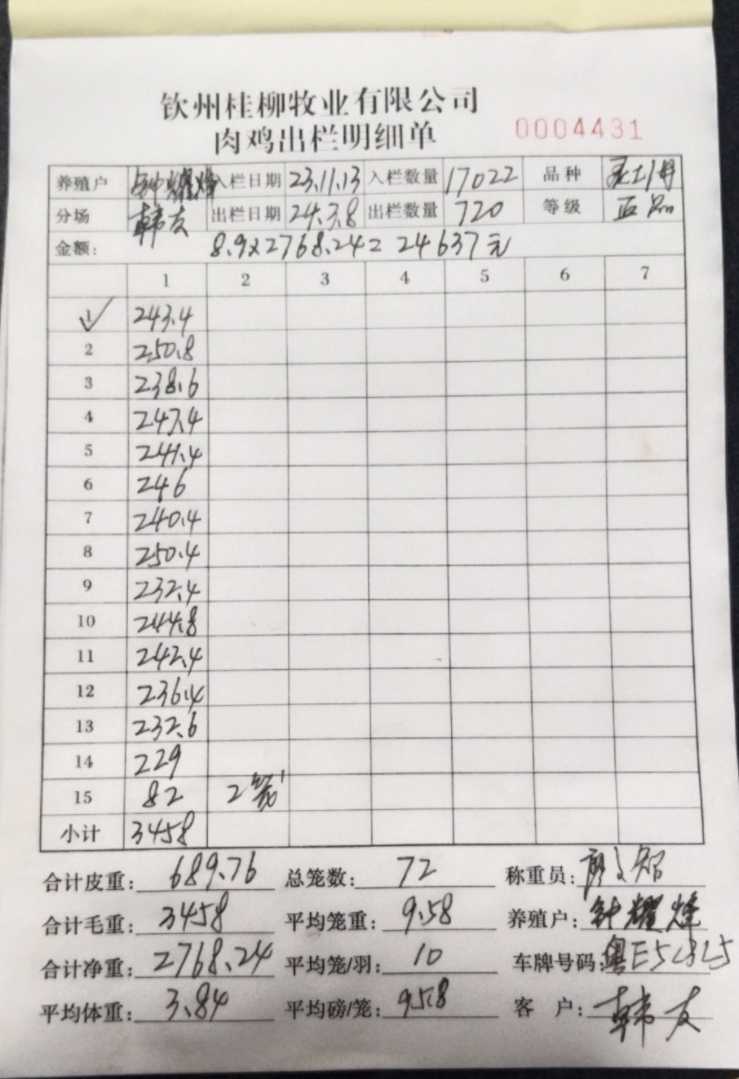 钦州桂柳牧业有限公司
肉鸡出栏明细单 0004431
养殖户 钟耀烽 入栏日期 23.11.13 入栏数量 17022 品种
分场 韩友 出栏日期 24.3.8 出栏数量 720 等级 正品
金额: 8.9×2768.24=24637元
1 2 3 4 5 6 7
1 243.4
2 250.8
3 238.6
4 247.4
5 241.4
6 246
7 240.4
8 250.4
9 232.4
10 244.8
11 242.4
12 236.4
13 232.6
14 229
15 82 2笼
小计 3458
合计皮重: 689.76 总笼数: 72 称重员:
合计毛重: 3458 平均笼重: 9.58 养殖户: 钟耀烽
合计净重: 2768.24 平均笼/羽: 10 车牌号码:
平均体重: 3.84 平均磅/笼: 9.58 客户: 韩友